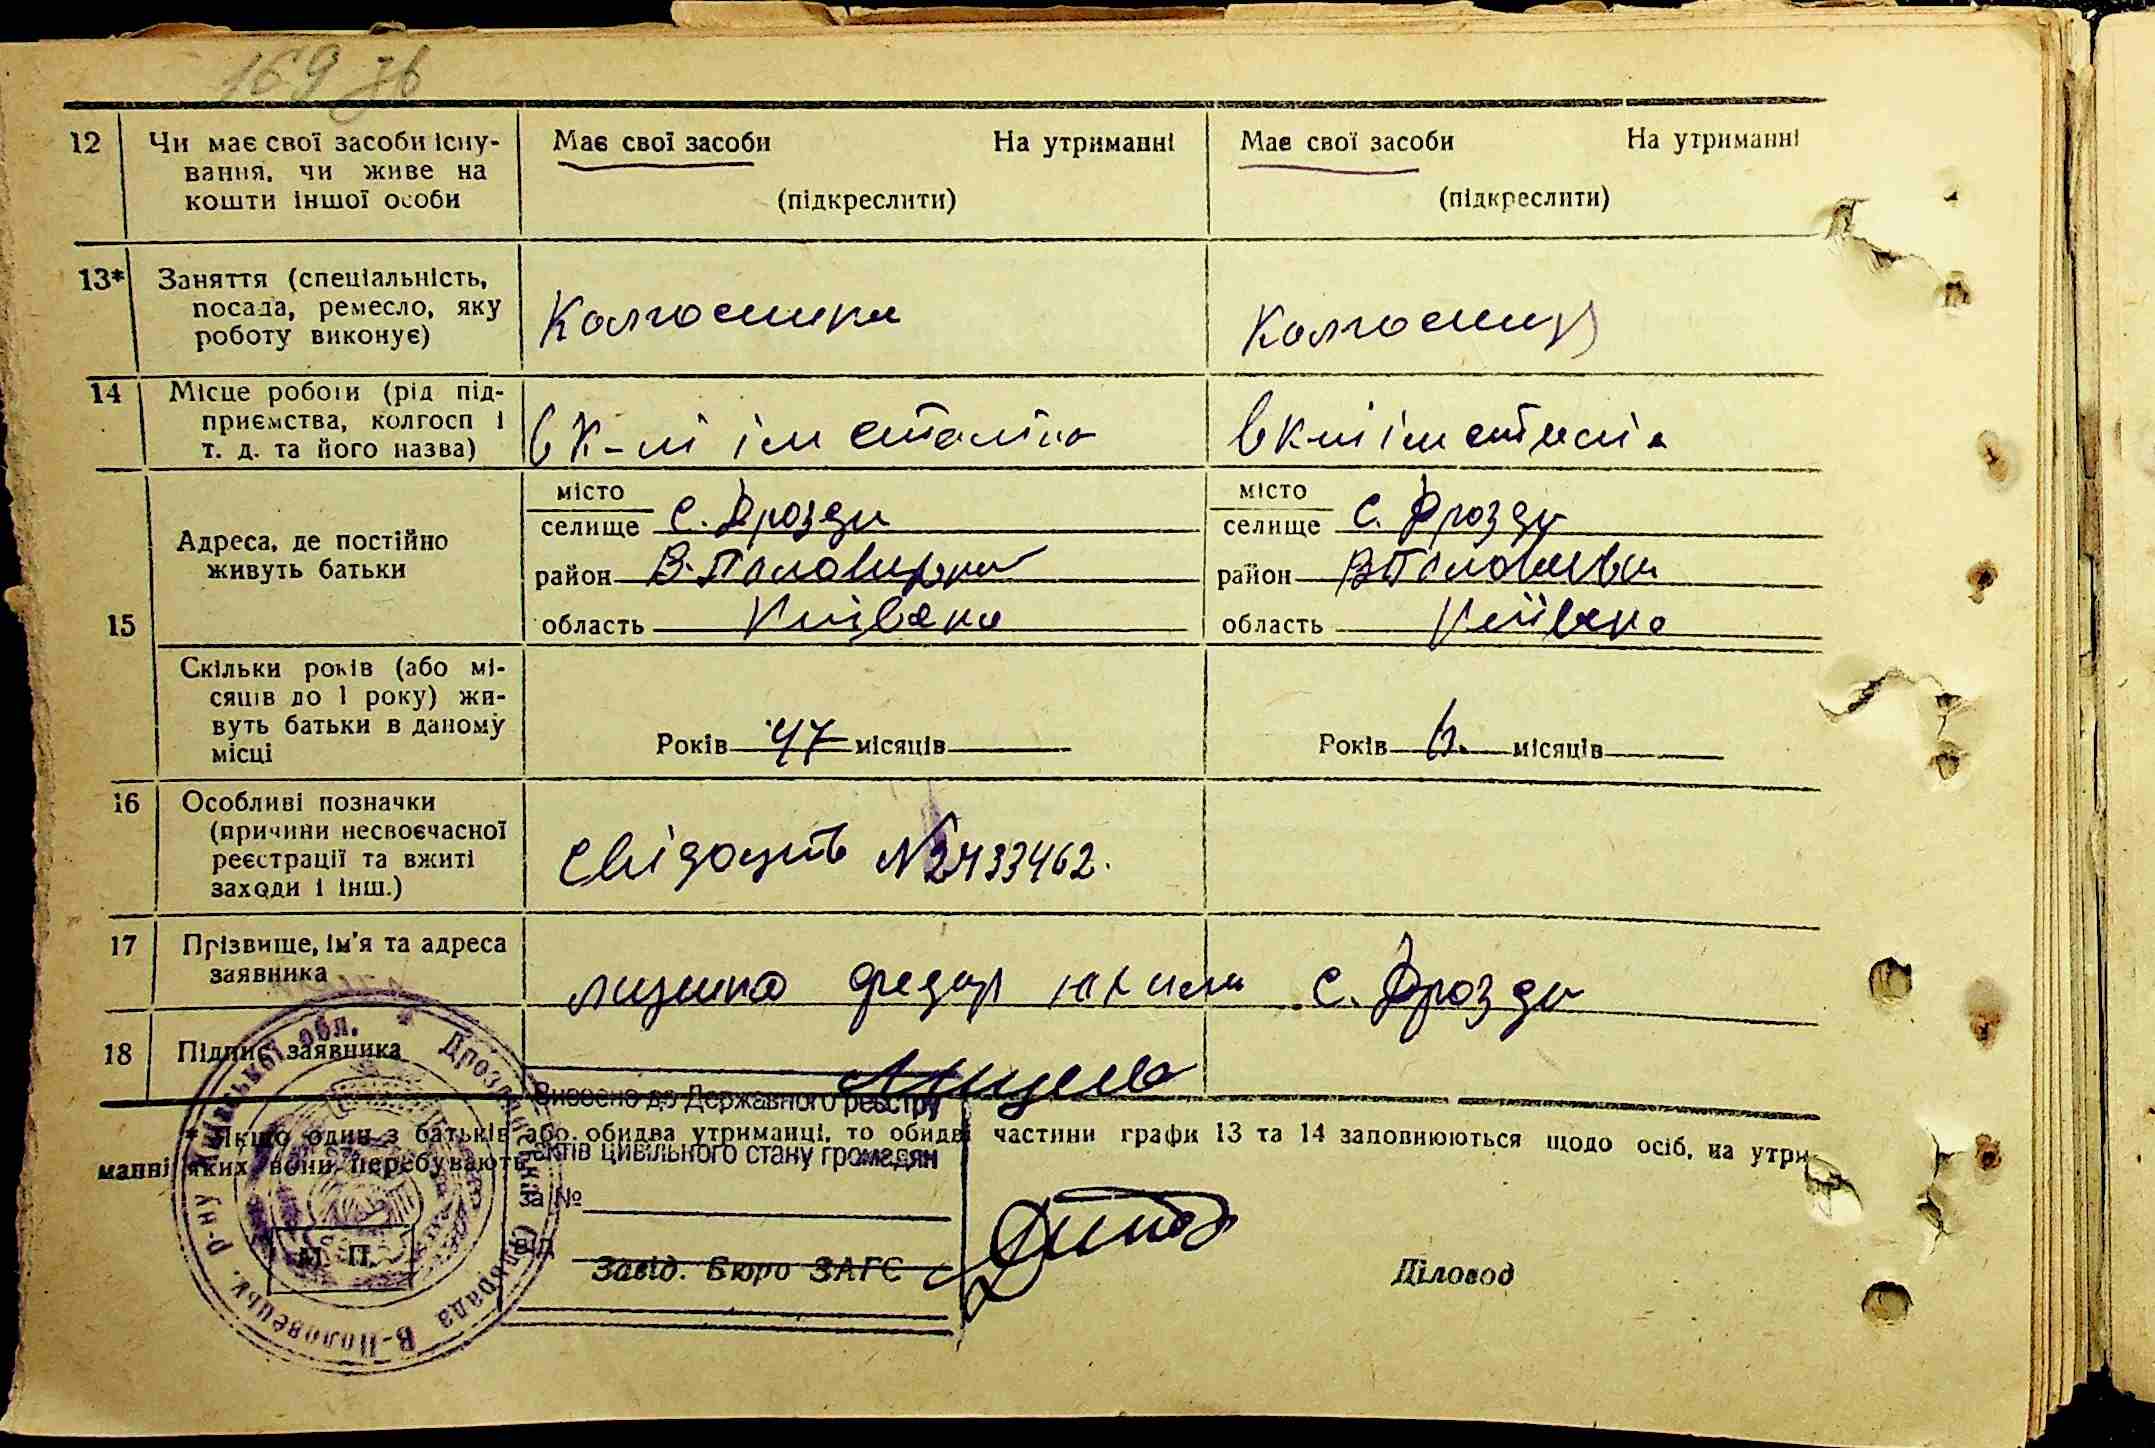 169 зв
12 Чи має свої засоби існу- Має свої засоби На утриманні Має свої засоби На утриманні
вання, чи живе на
кошти іншої особи (підкреслити) (підкреслити)
13* Заняття (спеціальність,
посада, ремесло, яку Колгоспник Колгоспниця
роботу виконує)
14 Місце роботи (рід під-
приємства, колгосп і в К-пі ім Сталіна в К-пі ім Сталіна
т. д. та його назва)
15 Адреса, де постійно
живуть батьки
місто місто
селище с. Дрозди селище с. Дрозди
район В. Половецький район В Половецьки
область Київска область Київска
Скільки років (або мі-
сяців до 1 року) жи-
вуть батьки в даному Років 47 місяців Років місяців
місці
16 Особливі позначки
(причини несвоєчасної
реєстрації та вжиті Свідоцтв №2433462.
заходи і інш.)
17 Прізвище, ім'я та адреса
заявника Федор с. Дрозди
18 Підпис заявника
Внесено до Державного реєстру
* Якщо один з батьків або обидва утриманці, то обидві частини графи 13 та 14 заповнюються щодо осіб, на утри-
манні яких вони перебувають
актів цивільного стану громадян
за №
від
М. П. Завід. Бюро ЗАГС Діловод
Дроздівська Сільрада В-Половецьк. р-ну Київської обл.